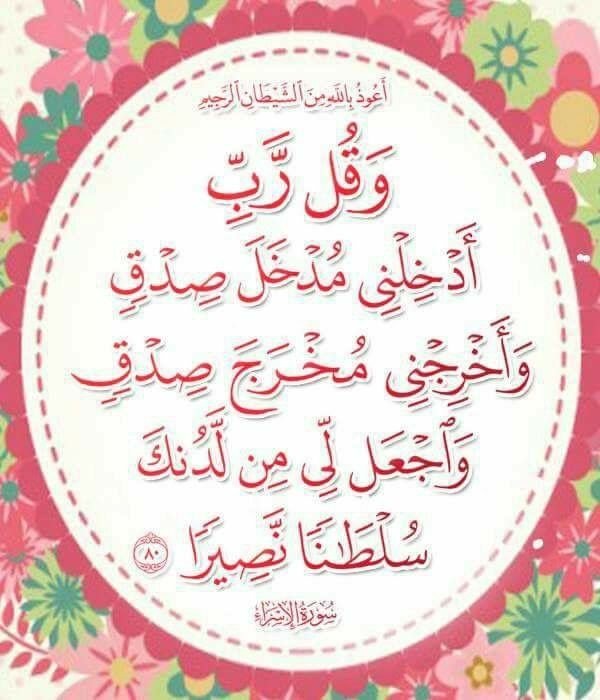 أَعُوذُ بِاللَّهِ مِنَ ٱلشَّيْطَانِ ٱلرَّجِيمِ
وَقُل رَّبِّ
أَدْخِلْنِى مُدْخَلَ صِدْقٍ
وَأَخْرِجْنِى مُخْرَجَ صِدْقٍ
وَٱجْعَل لِّى مِن لَّدُنكَ
سُلْطَٰنًا نَّصِيرًا ٨٠
سُورَةُ الإِسْرَاءِ